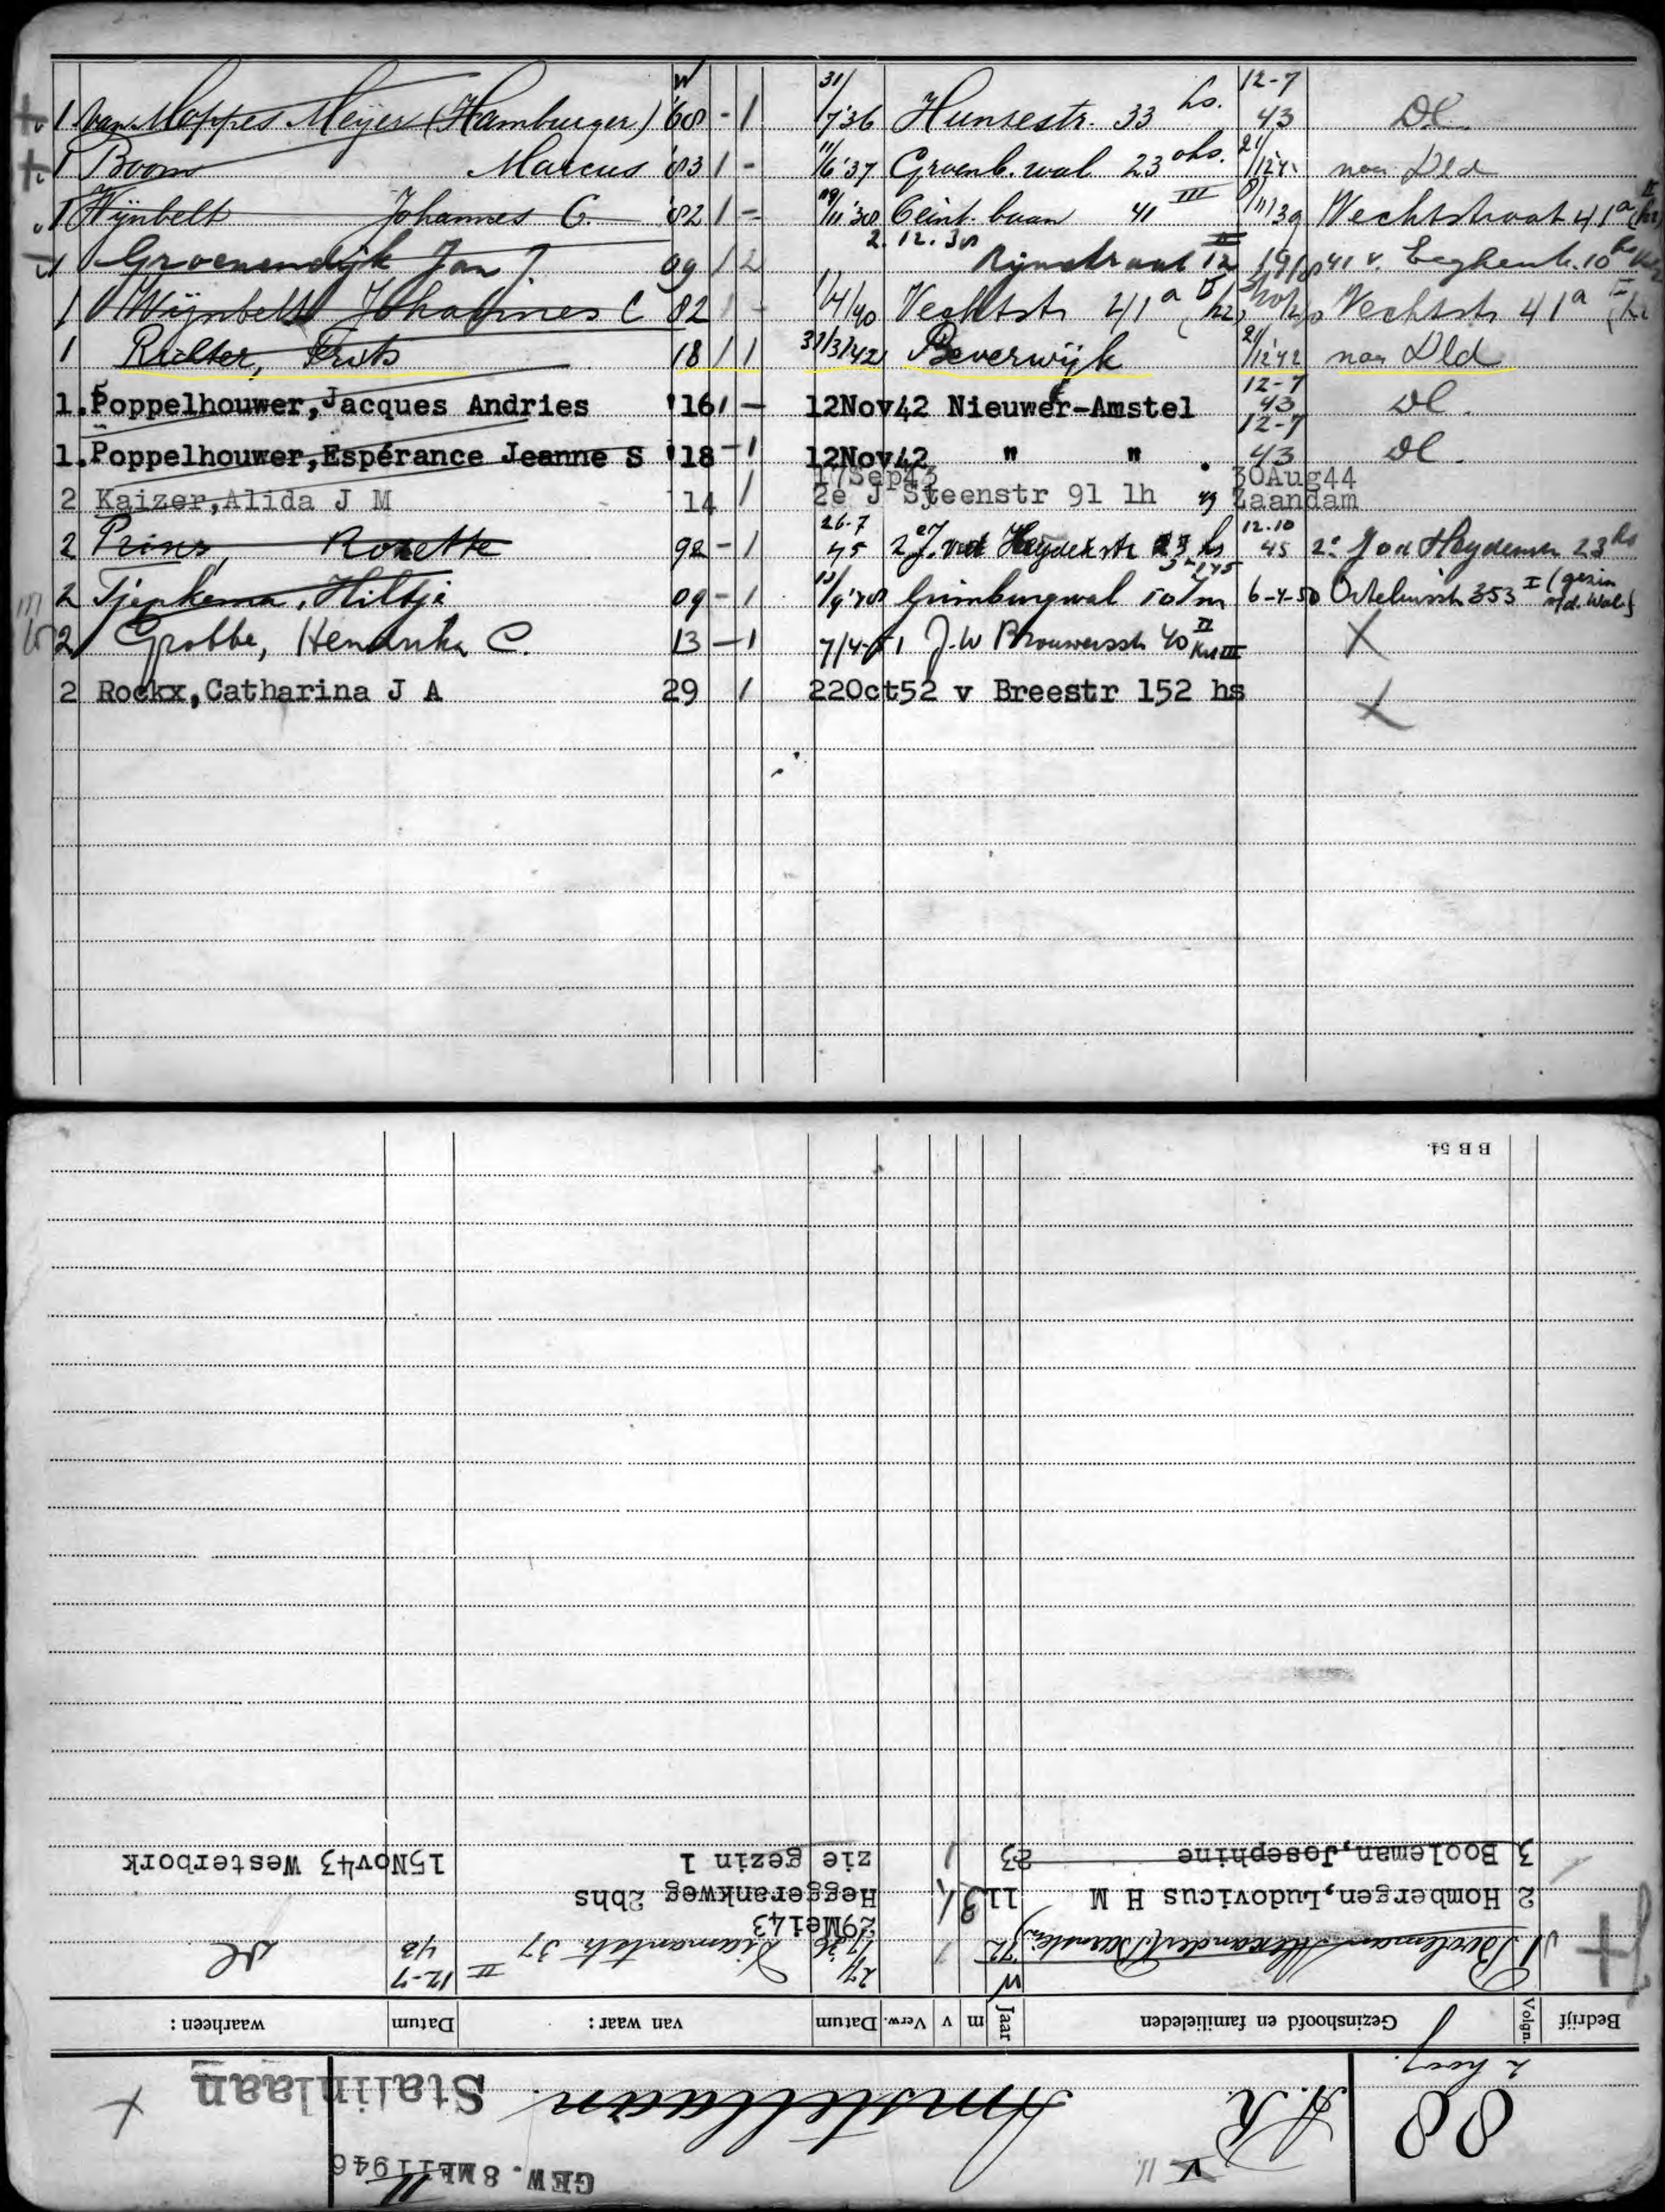 1 van Moppes Meijer (Hamburger) W '68 - 1 31/7 '36 Hunsestr. 33 hs. 12-7 43 Dl.
1 Boom Marcus '83 1 - 11/6 '37 Groenb. wal 23 ohs. 21/12 '42 naar Dld
1 Wijnbelt Johannes C. '82 1 - /11 '38 Ceint. baan 41 III /11/39 Vechtstraat 41a II (hz)
1 Groenendijk Jan J. 09 1 2 2.12.38 Rijnstraat 12 II 41 v. Eeghenstr. 10 hs
1 Wijnbelt Johannes C 82 1 - 1/4/40 Vechtstr 41a II (hz) Vechtstr 41a II (hz
1 Richter, Frits 18 1 1 31/3/42 Beverwijk 21/12 '42 naar Dld
1. Poppelhouwer, Jacques Andries '16 1 - 12Nov42 Nieuwer-Amstel 12-7 43 Dl.
1. Poppelhouwer, Espérance Jeanne S '18 - 1 12Nov42 " " 12-7 43 Dl.
2 Kaizer, Alida J M 14 1 17Sep43 2e J Steenstr 91 1h 30Aug44 Zaandam
2 Prins, Rozette 92 - 1 26-7 45 2e J. vd Heydenstr 23 hs 12.10 45 2e J vd Heydenstr 23 hs
2 Tjepkema, Hiltje 09 - 1 Grimburgwal 10 6-4-50 353 I (gezin v/d. Wal)
2 Grobbe, Hendrika C. 13 - 1 7/4-51 J.W Brouwersstr 40 II X
2 Rockx, Catharina J A 29 1 22Oct52 v Breestr 152 hs X
B B 54.
GEW. 8 MEI 1946
88 2 hoog. A.R. V Amstellaan Stalinlaan X
Bedrijf Volgn. Gezinshoofd en familieleden Jaar m v Verw. Datum van waar: Datum waarheen:
1 Booleman Alexander W '72 1 27/7 '36 Diamantstr. 37 II 12-7 43 Dl
2 Hombergen, Ludovicus H M 11 1 29Mei43 Heggerankweg 2bhs
3 Booleman, Josephine 23 1 zie gezin 1 15Nov43 Westerbork